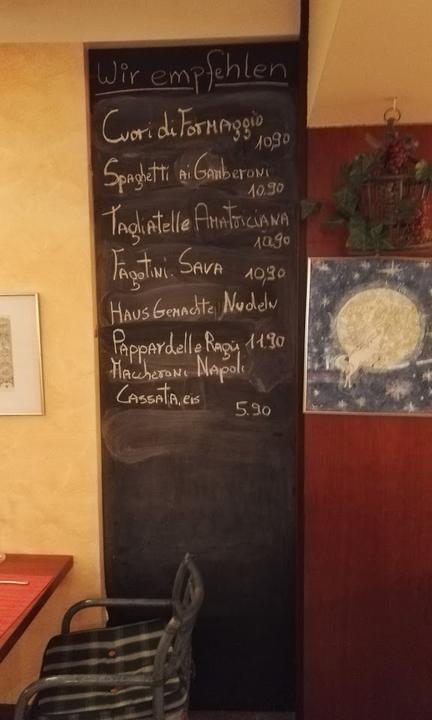 Wir empfehlen
Cuori di Formaggio
10,90
Spaghetti ai Gamberoni
10.90
Tagliatelle AMATriciANA
10.90
Fagotini. SAVA 10,90
HAUS GemAchte Nudeln
PAppArdelle Ragù 11.90
MAccheroni NApoli
CASSATA, eis
5.90